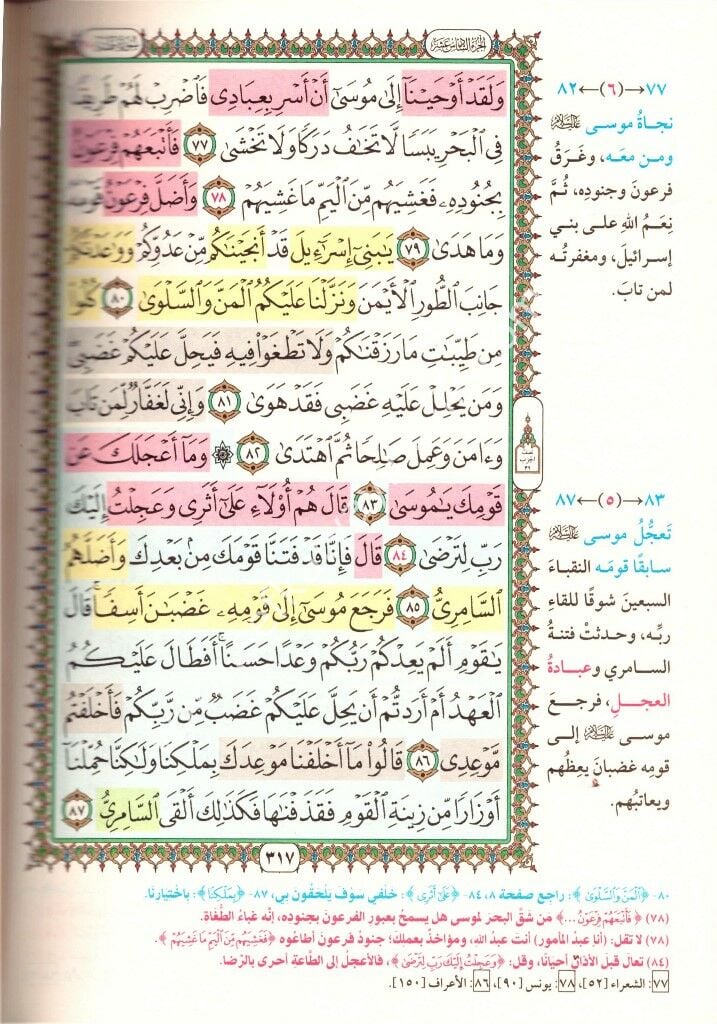 الجزء السادس عشر
وَلَقَدْ أَوْحَيْنَآ إِلَىٰ مُوسَىٰٓ أَنْ أَسْرِ بِعِبَادِى فَٱضْرِبْ لَهُمْ طَرِيقًا
فِى ٱلْبَحْرِ يَبَسًا لَّا تَخَٰفُ دَرَكًا وَلَا تَخْشَىٰ ٧٧ فَأَتْبَعَهُمْ فِرْعَوْنُ
بِجُنُودِهِۦ فَغَشِيَهُم مِّنَ ٱلْيَمِّ مَا غَشِيَهُمْ ٧٨ وَأَضَلَّ فِرْعَوْنُ قَوْمَهُۥ
وَمَا هَدَىٰ ٧٩ يَٰبَنِىٓ إِسْرَٰٓءِيلَ قَدْ أَنجَيْنَٰكُم مِّنْ عَدُوِّكُمْ وَوَٰعَدْنَٰكُمْ
جَانِبَ ٱلطُّورِ ٱلْأَيْمَنَ وَنَزَّلْنَا عَلَيْكُمُ ٱلْمَنَّ وَٱلسَّلْوَىٰ ٨٠ كُلُوا۟
مِن طَيِّبَٰتِ مَا رَزَقْنَٰكُمْ وَلَا تَطْغَوْا۟ فِيهِ فَيَحِلَّ عَلَيْكُمْ غَضَبِى
وَمَن يَحْلِلْ عَلَيْهِ غَضَبِى فَقَدْ هَوَىٰ ٨١ وَإِنِّى لَغَفَّارٌ لِّمَن تَابَ
وَءَامَنَ وَعَمِلَ صَٰلِحًا ثُمَّ ٱهْتَدَىٰ ٨٢ ۞ وَمَآ أَعْجَلَكَ عَن
قَوْمِكَ يَٰمُوسَىٰ ٨٣ قَالَ هُمْ أُو۟لَآءِ عَلَىٰٓ أَثَرِى وَعَجِلْتُ إِلَيْكَ
رَبِّ لِتَرْضَىٰ ٨٤ قَالَ فَإِنَّا قَدْ فَتَنَّا قَوْمَكَ مِنۢ بَعْدِكَ وَأَضَلَّهُمُ
ٱلسَّامِرِىُّ ٨٥ فَرَجَعَ مُوسَىٰٓ إِلَىٰ قَوْمِهِۦ غَضْبَٰنَ أَسِفًا قَالَ
يَٰقَوْمِ أَلَمْ يَعِدْكُمْ رَبُّكُمْ وَعْدًا حَسَنًا أَفَطَالَ عَلَيْكُمُ
ٱلْعَهْدُ أَمْ أَرَدتُّمْ أَن يَحِلَّ عَلَيْكُمْ غَضَبٌ مِّن رَّبِّكُمْ فَأَخْلَفْتُم
مَّوْعِدِى ٨٦ قَالُوا۟ مَآ أَخْلَفْنَا مَوْعِدَكَ بِمَلْكِنَا وَلَٰكِنَّا حُمِّلْنَآ
أَوْزَارًا مِّن زِينَةِ ٱلْقَوْمِ فَقَذَفْنَٰهَا فَكَذَٰلِكَ أَلْقَى ٱلسَّامِرِىُّ ٨٧
٣١٧
٧٧→(٦)←٨٢
نجاةُ موسى عليه السلام
ومن معه، وغَرَقُ
فرعونَ وجنودِه، ثُمَّ
نِعَمُ اللهِ على بني
إسرائيلَ، ومغفرتُه
لمن تابَ.
نصف
الحزب
٣٢
٨٣→(٥)←٨٧
تَعجُّلُ موسى عليه السلام
سابقًا قومَه النقباءَ
السبعينَ شوقًا للقاءِ
ربِّه، وحدثتْ فتنةُ
السامري وعبادةُ
العجلِ، فرجعَ
موسى عليه السلام إلى
قومِه غضبانَ يعِظُهم
ويعاتبُهم.
٨٠- ﴿الْمَنَّ وَالسَّلْوَىٰ﴾: راجع صفحة ٨، ٨٤- ﴿عَلَىٰٓ أَثَرِى﴾: خلفي سوف يلحقون بي، ٨٧- ﴿بِمَلْكِنَا﴾: باختيارنا.
(٧٨) ﴿فَأَتْبَعَهُمْ فِرْعَوْنُ...﴾ مَن شقَّ البحر لموسى هل يسمحُ بعبور الفرعون بجنوده، إنَّه غباءُ الطُّغاة.
(٧٨) لا تقل: (أنا عبدُ المأمور) أنت عبدُ الله، ومؤاخذٌ بعملِك؛ جنودُ فرعون أطاعُوه ﴿فَغَشِيَهُم مِّنَ الْيَمِّ مَا غَشِيَهُمْ﴾.
(٨٤) تعال قبل الأذان أحيانًا، وقل: ﴿وَعَجِلْتُ إِلَيْكَ رَبِّ لِتَرْضَىٰ﴾، فالأعجلُ إلى الطَّاعةِ أحرى بالرِّضا.
٧٧: الشعراء [٥٢]، ٧٨: يونس [٩٠]، ٨٦: الأعراف [١٥٠].